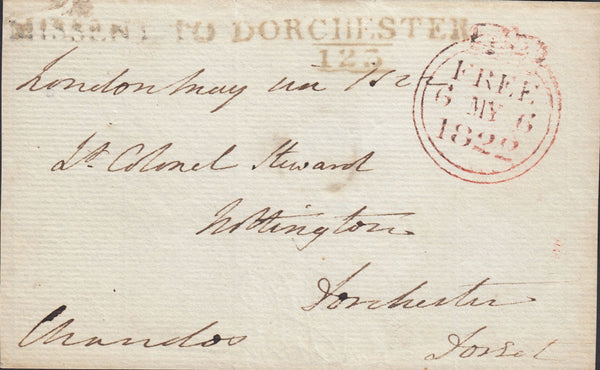 MISSENT TO DORCHESTER
123
FREE
6 MY 6
1822
London May 1822
Lt Colonel Steward
Nottington
Dorchester
Chandos
Dorset